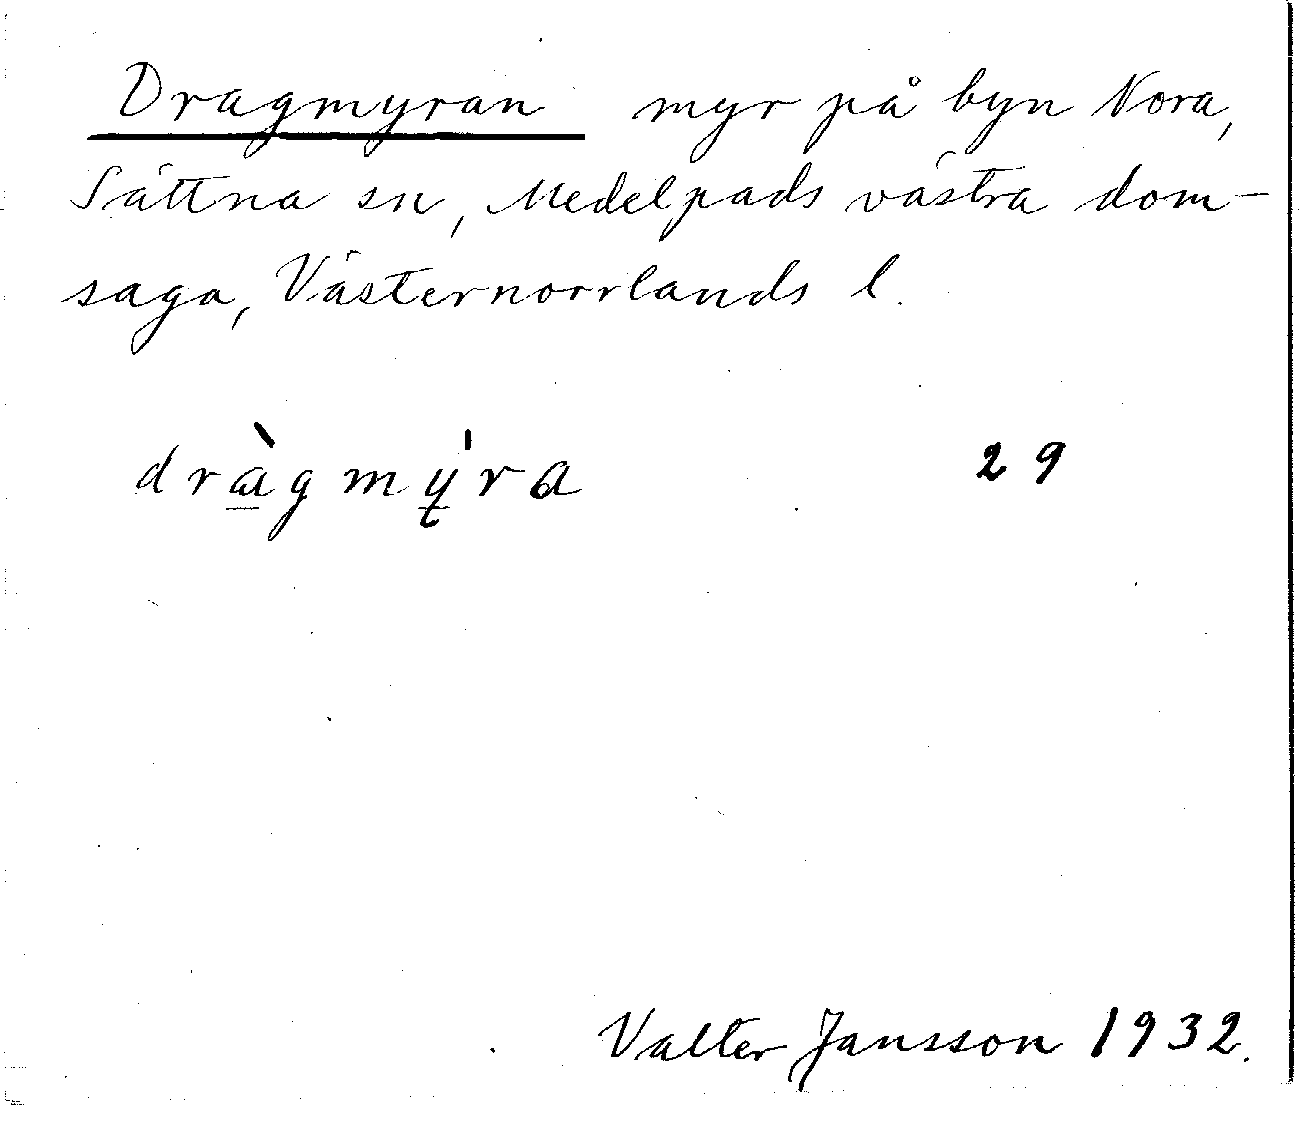 Dragmyran myr på byn Nora,
Sättna sn, Medelpads västra dom-
saga, Västernorrlands l.
drà̲gmy̲̍ra 29
Valter Jansson 1932.